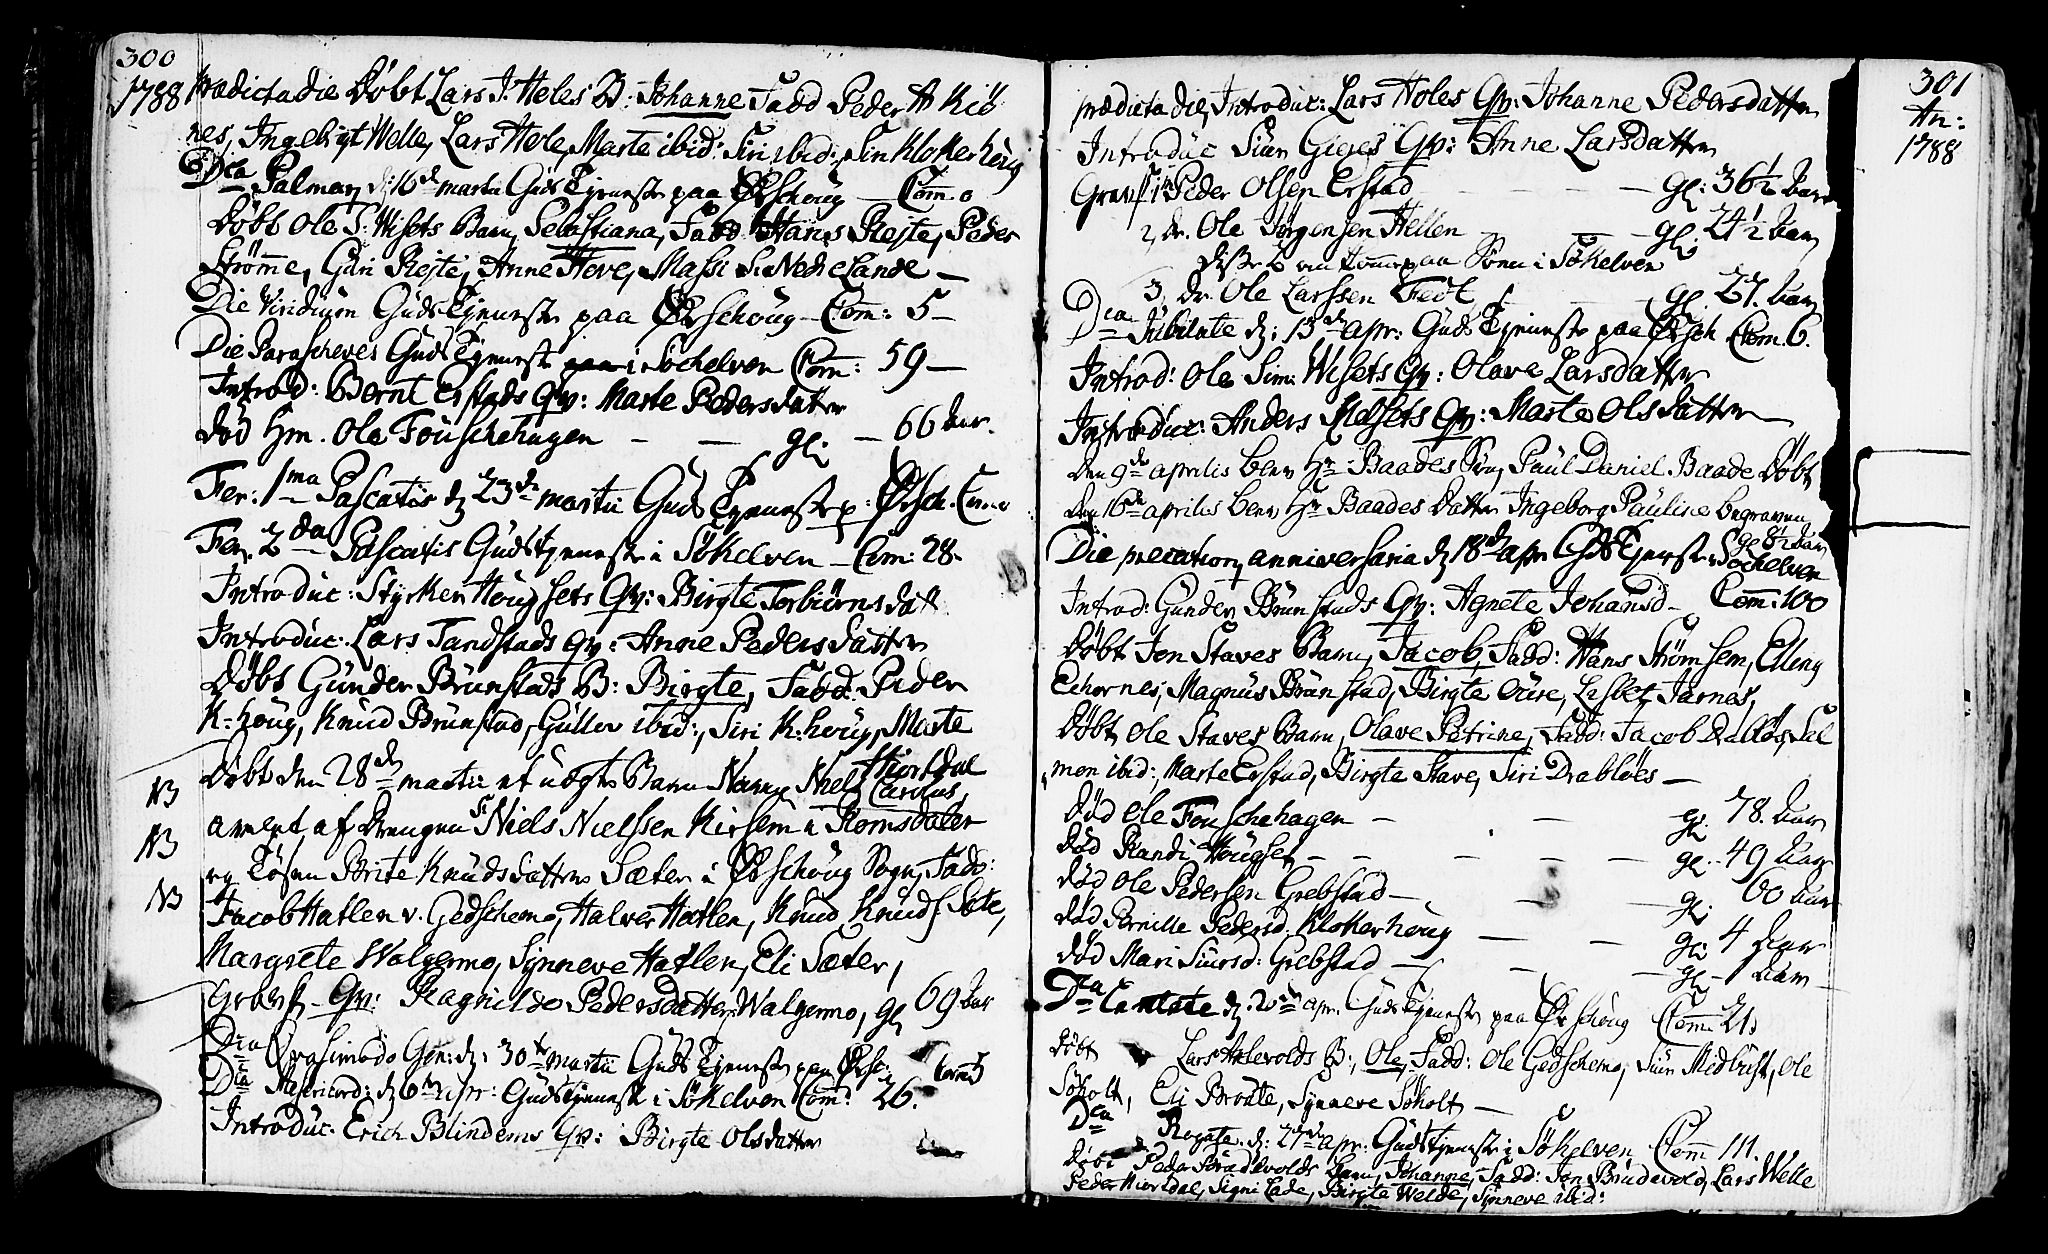 300
1788 prædicta die Døbt Lars J. Heles B: Johanne Fadd Peder A Kiø
nes, Ingebrigt Welle, Lars Hole, Marte ibid: Siri ibid:, Siri Klokerhoug
Dca Palmar d: 16de martii Guds Tjeneste paa Ørschoug — Com. 0
Døbt Ole S. Wisets Barn, Sebastiana, Fadd Hans Rejte, Peder
Strømme, Guri Rejte, Anne Hove, Massi S. Nedre Lande —
Die Viridium Guds Tjeneste paa Ørschoug — Com: 5 —
Die Parasceves Guds Tjeneste i Søchelven Com: 59 —
Introd: Bernt Erstads Qv: Marte Pedersdatter
død Hm. Ole Fouschehagen — — gl: — 66 aar.
Fer: 1ma Pascatis d 23de martii Guds Tjeneste p: Ørsch. Com: 0
Fer. 2da Pascatis Gudstjeneste i Søkelven — Com: 28.
Introduc: Styrker Hougsets Qv: Birgte Torbiørnsdatt
Introduc. Lars Tandstads Qv: Anne Pedersdatter
Døbt Gunder Brunstads B: Birgte, Fadd: Peder
K:houg, Knud Brunstad, Gullov ibid:, Siri K:houg, Marte
Hiortdal
Døbt den 28de martii et uægte Barn Navn Niels Carolus,
NB
avlet af Drengen Sr Niels Nielssen Kirsem i Romsdalen
NB
og Tøsen Brite Knudsdatter Sæter i Ørschoug Sogn, Fadd:
NB
Jacob Hatlen v. Gedschemo, Halver Hatlen, Knud Knuds Sæte,
Margrete Walgermo, Synneve Hatlen, Eli Sæter,
Gravf. Qv: Ragnilde Pedersdatter Walgermo, gl 69 aar
Dca Qvasimodo Gen: d: 30te martii Guds Tjeneste paa Ørsc: Com:
Dca Misericord: d 6te apr: Gudstjeneste i Søkelven Com: 26.
Introduc. Erich Blindems Qv: Birgte Olsdatter
301
An:
1788
prædicta die, Introduc: Lars Holes Qv: Johanne Pedersdatter
Introduc Siur Gieges Qv: Anne Larsdatter
Gravf. 1, Peder Olsen Erstad — — — gl: 36½ aar
2, dr. Ole Jørgensen Hellen — — gl: 24½ aar
disse 2 om komne paa Søen i Søkelven
3, dr. Ole Larssen Fedt — — gl: 27. aar
Dca Jubilate d: 13de apr: Guds Tjeneste paa Ørsch Com. 6.
Introd: Ole Sim: Wisets Qv: Olave Larsdatter
Introduc: Anders Mosets Qv: Marte Olsdatter
Den 9de aprilis blev Hr Baades Søn, Paul Daniel Baade Døbt
Den 16de aprilis blev Hr Baades Datter Ingeborg Pauline begraven
gl 8½ aar
Die precation anniversaria d 18de apr Guds Tjeneste i Søchelven
Introd: Gunder Brunstads Qv: Agnete Johansd — Com: 100
Døbt Jon Staves Barn, Jacob, Fadd: Hans Strømsem, Elling
Echornes, Magnus Brunstad, Birgte Oure, Lesbet Jarnes,
Døbt Ole Staves Barn, Olave Petrine, Fadd: Jacob Dabløs, Sal
mon ibid:, Marte Erstad, Birgte Stave, Siri Drabløes —
død Ole Fouschehagen — — gl. 78. aar
død Randi Hougset — — — gl: 49 aar
død Ole Pedersen Grebstad — — gl: 60 aar
død Pernille Pedersd: Klokerhoug — — gl: 4 aar
død Mari Siursd: Grebstad — — gl 1 aar —
Dca Cantate d: 20de apr. Guds Tjeneste paa Ørschoug Com: 21.
Døbt Lars Halevolds B:, Ole, Fadd: Ole Gedschemo, Siur Midbust, Ole
Søholt, Eli Brodte, Synneve Søholt —
Dca Rogate. d: 27de apr: Gudstjeneste i Søkelven Com 111.
Døbt Peder Søradlvolds Barn, Johanne, Fadd: Jon Brudevold, Lars Welle
Peder Hiortdal, Signi Lade, Birgte Welde, Synneve ibid: